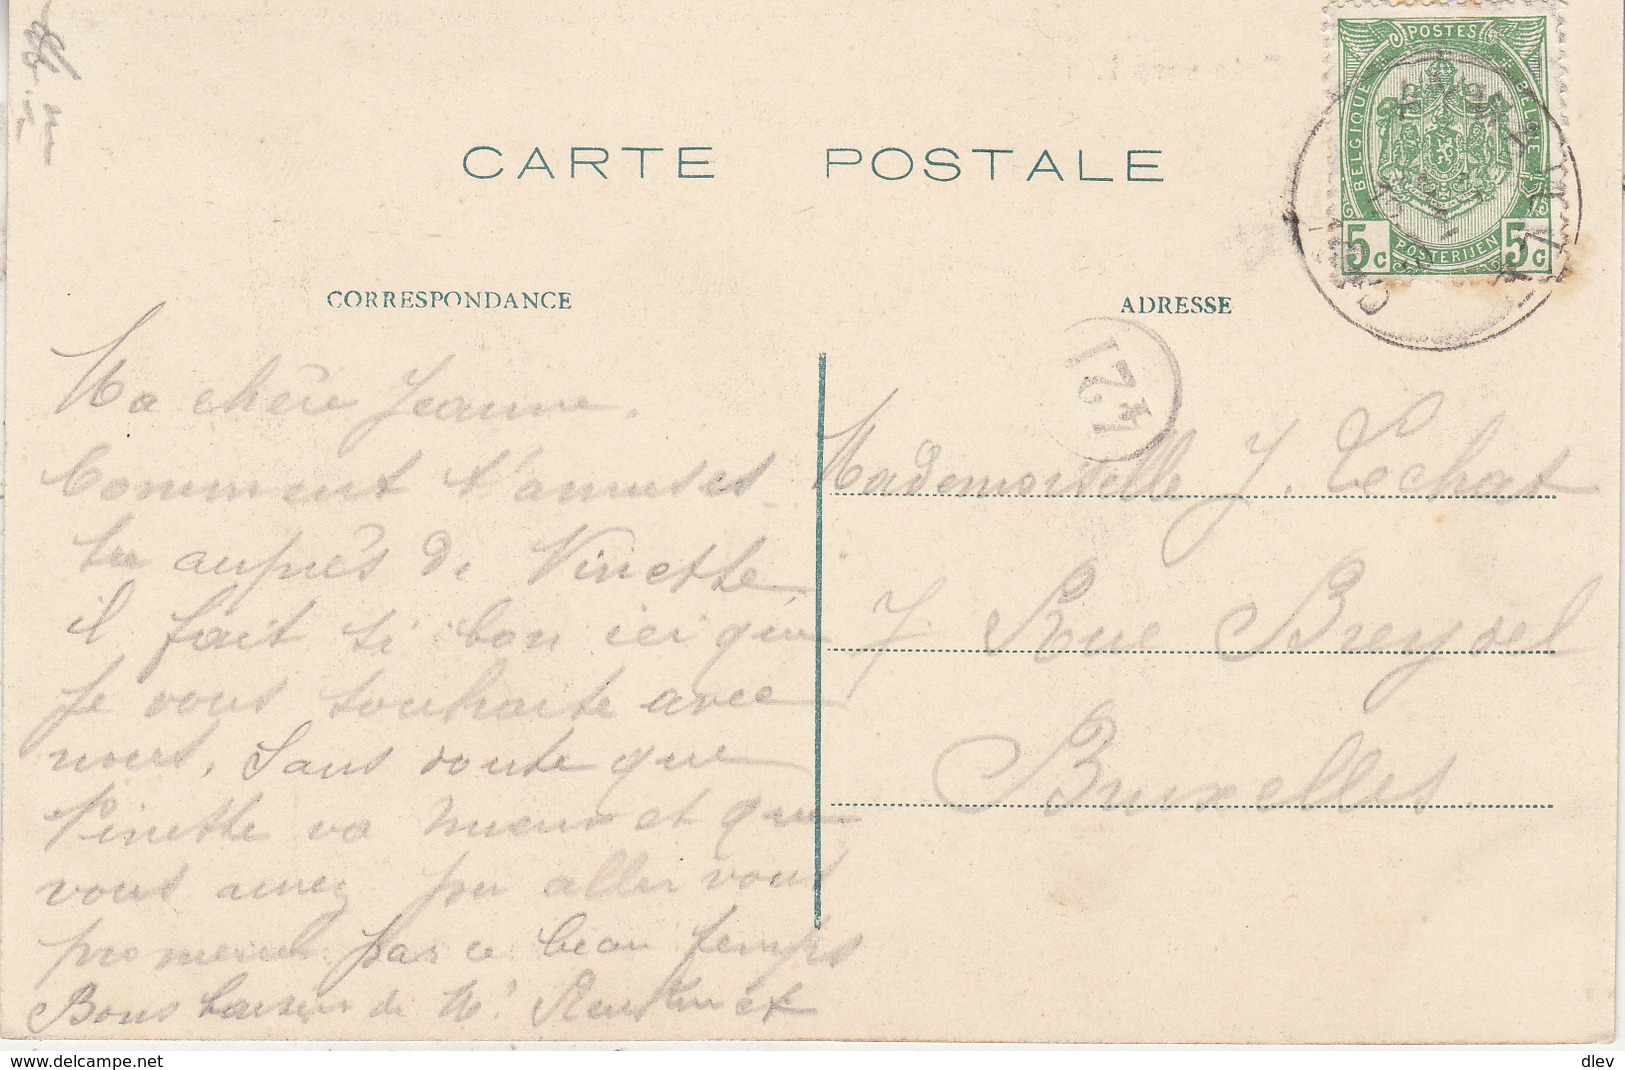 CARTE POSTALE
CORRESPONDANCE
ADRESSE
POSTES
BELGIQUE
BELGIE
5c POSTERIJEN 5c
1 * 21
Ma chère Jeanne.
Comment t'amuses
tu auprès de Vinette,
il fait si bon ici que
je vous souhaite avec
nous, sans doute que
Vinette va mieux et que
vous aurez pu aller vous
promener par ce beau temps
Bons baisers de
Mademoiselle J. Lechat
7. Rue Breydel
Bruxelles
www.delcampe.net
dlev